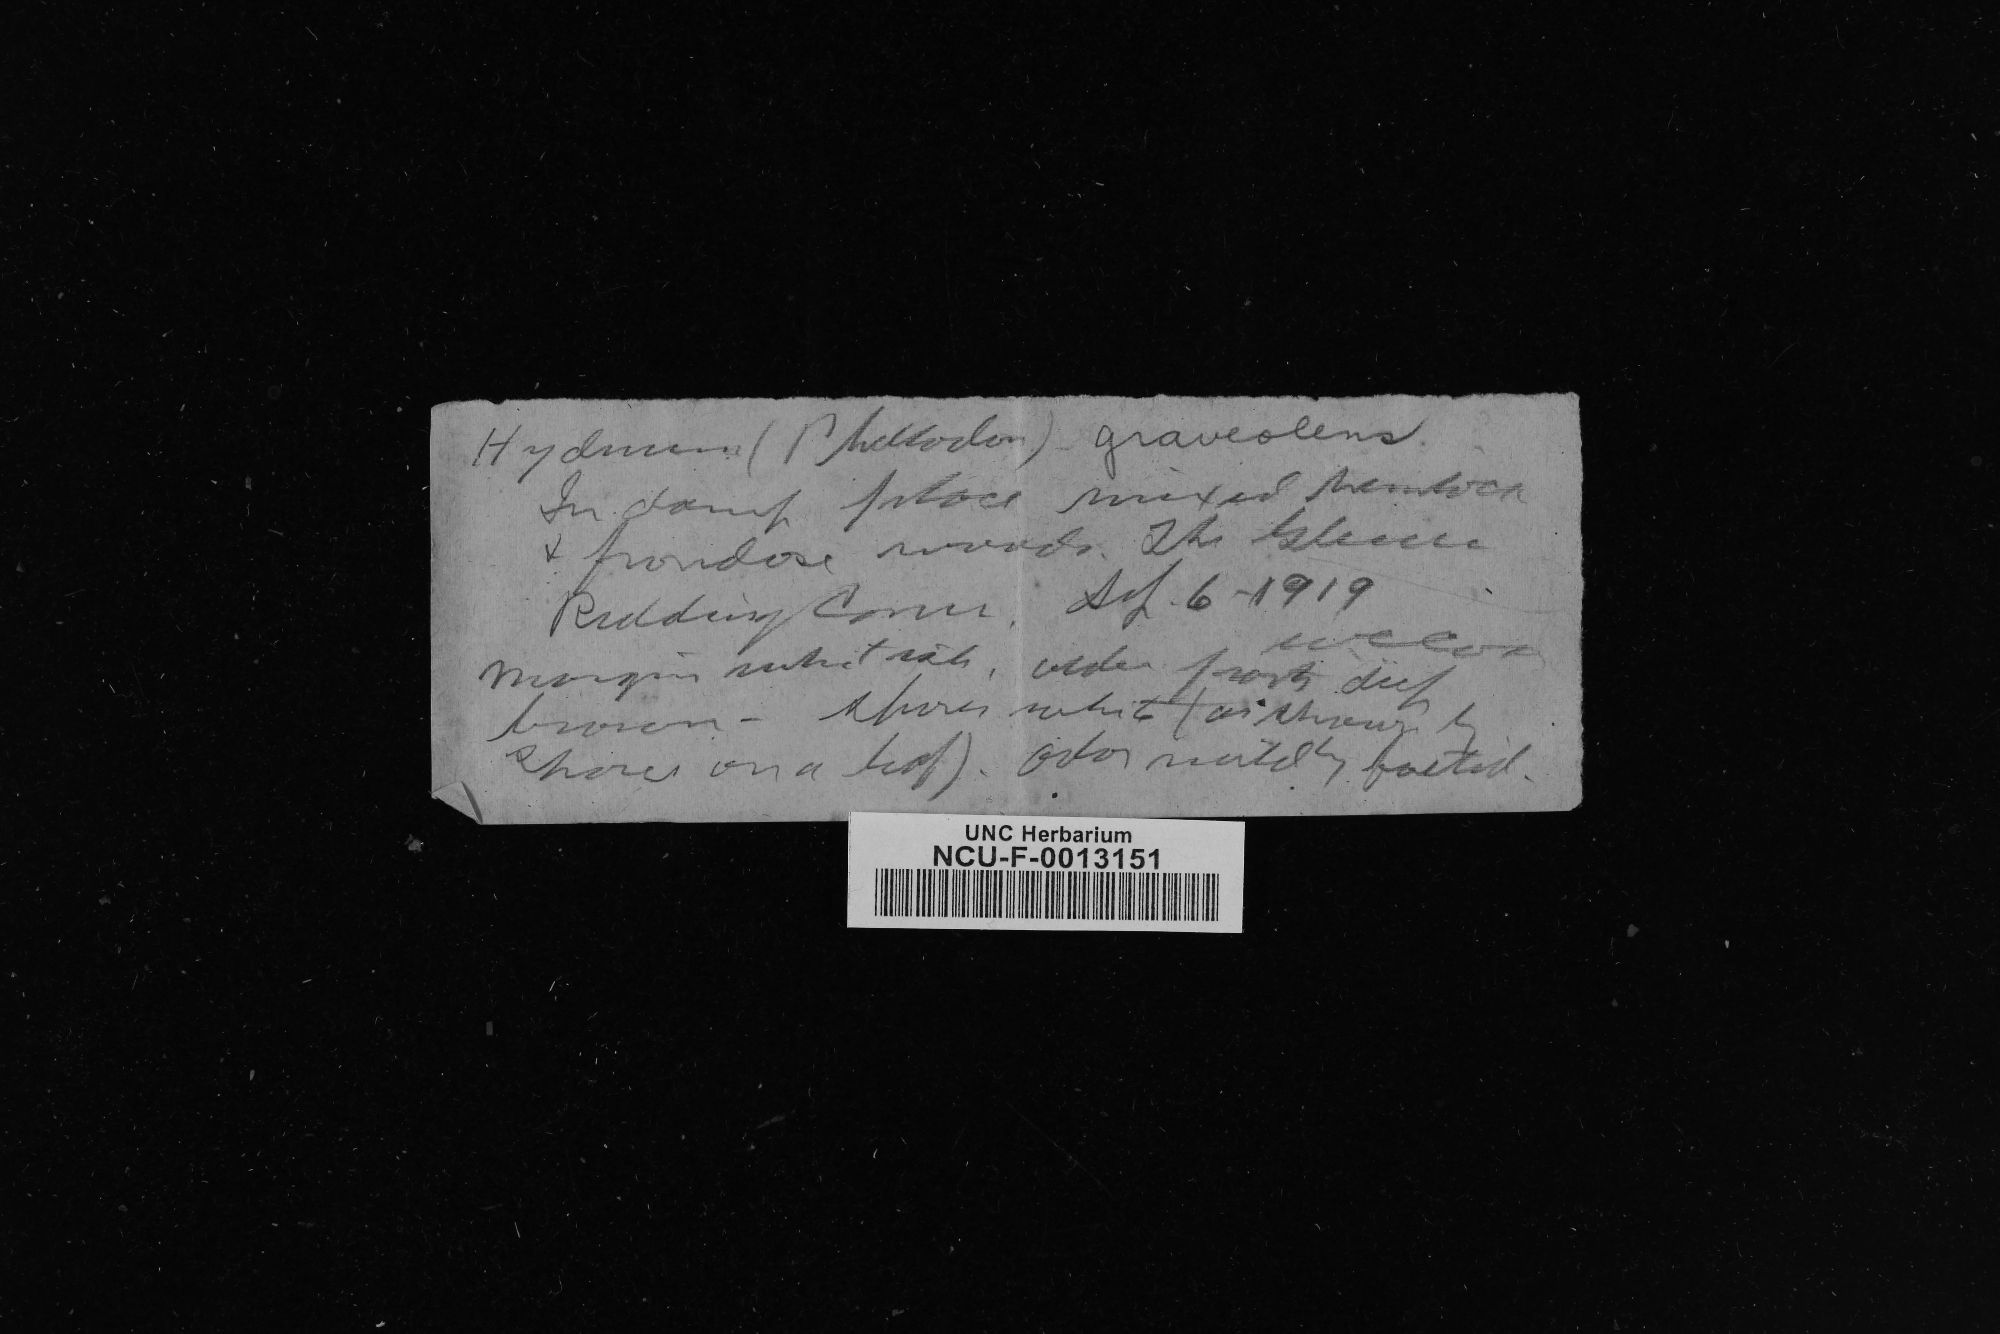 Hydnum (Phellodon) graveolens.
In damp place mixed hemlock
& frondose woods. The Glen
Redding Conn. Sep. 6-1919
W C Coker
Margin whitish, older parts deep
brown - Spores white (as shown by
spores on a leaf). Odor mildly foetid.
UNC Herbarium
NCU-F-0013151